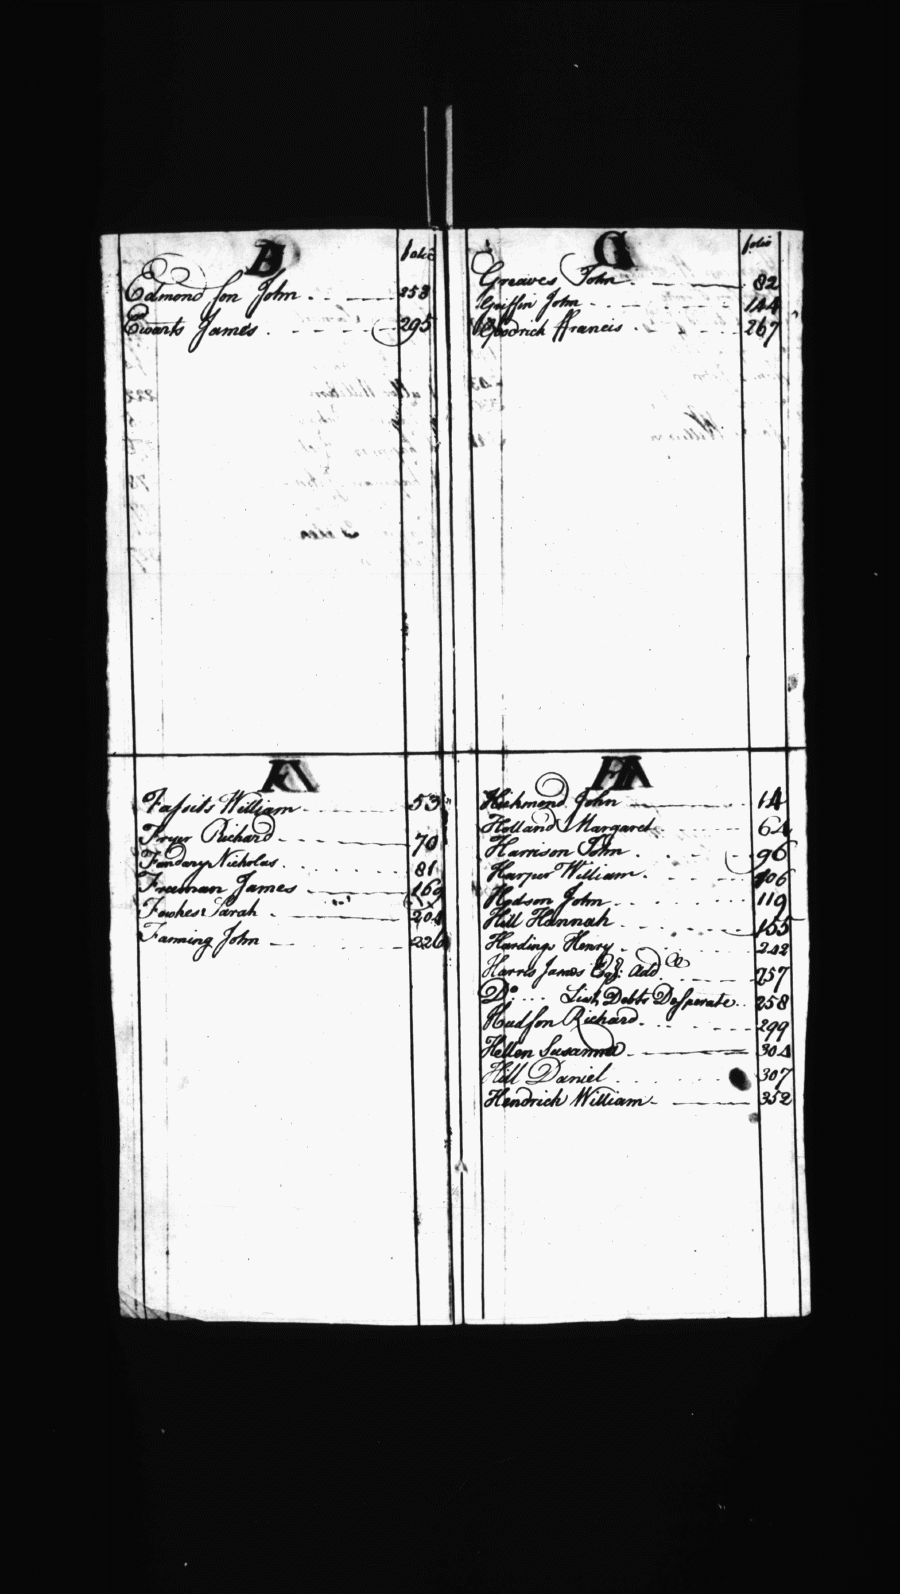 E folio
Edmondson John 253
Ewarts James 295
G folio
Greaves John 82
Griffin John 144
Goodrich ffrancis 267
F
Fassits William 53
Fryer Richard 70
Fandary Nicholas 81
Freeman James 169
Fowkes Sarah 204
Fanning John 226
H
Hickmond John 14
Holland Margaret 64
Harrison John 96
Harper William 106
Hodson John 119
Hill Hannah 155
Hardings Henry 242
Harris James Esqr. add 257
Do. List Debts Desperate 258
Hudson Richard 299
Hellen Susanna 304
Hill Daniel 307
Hendrick William 352